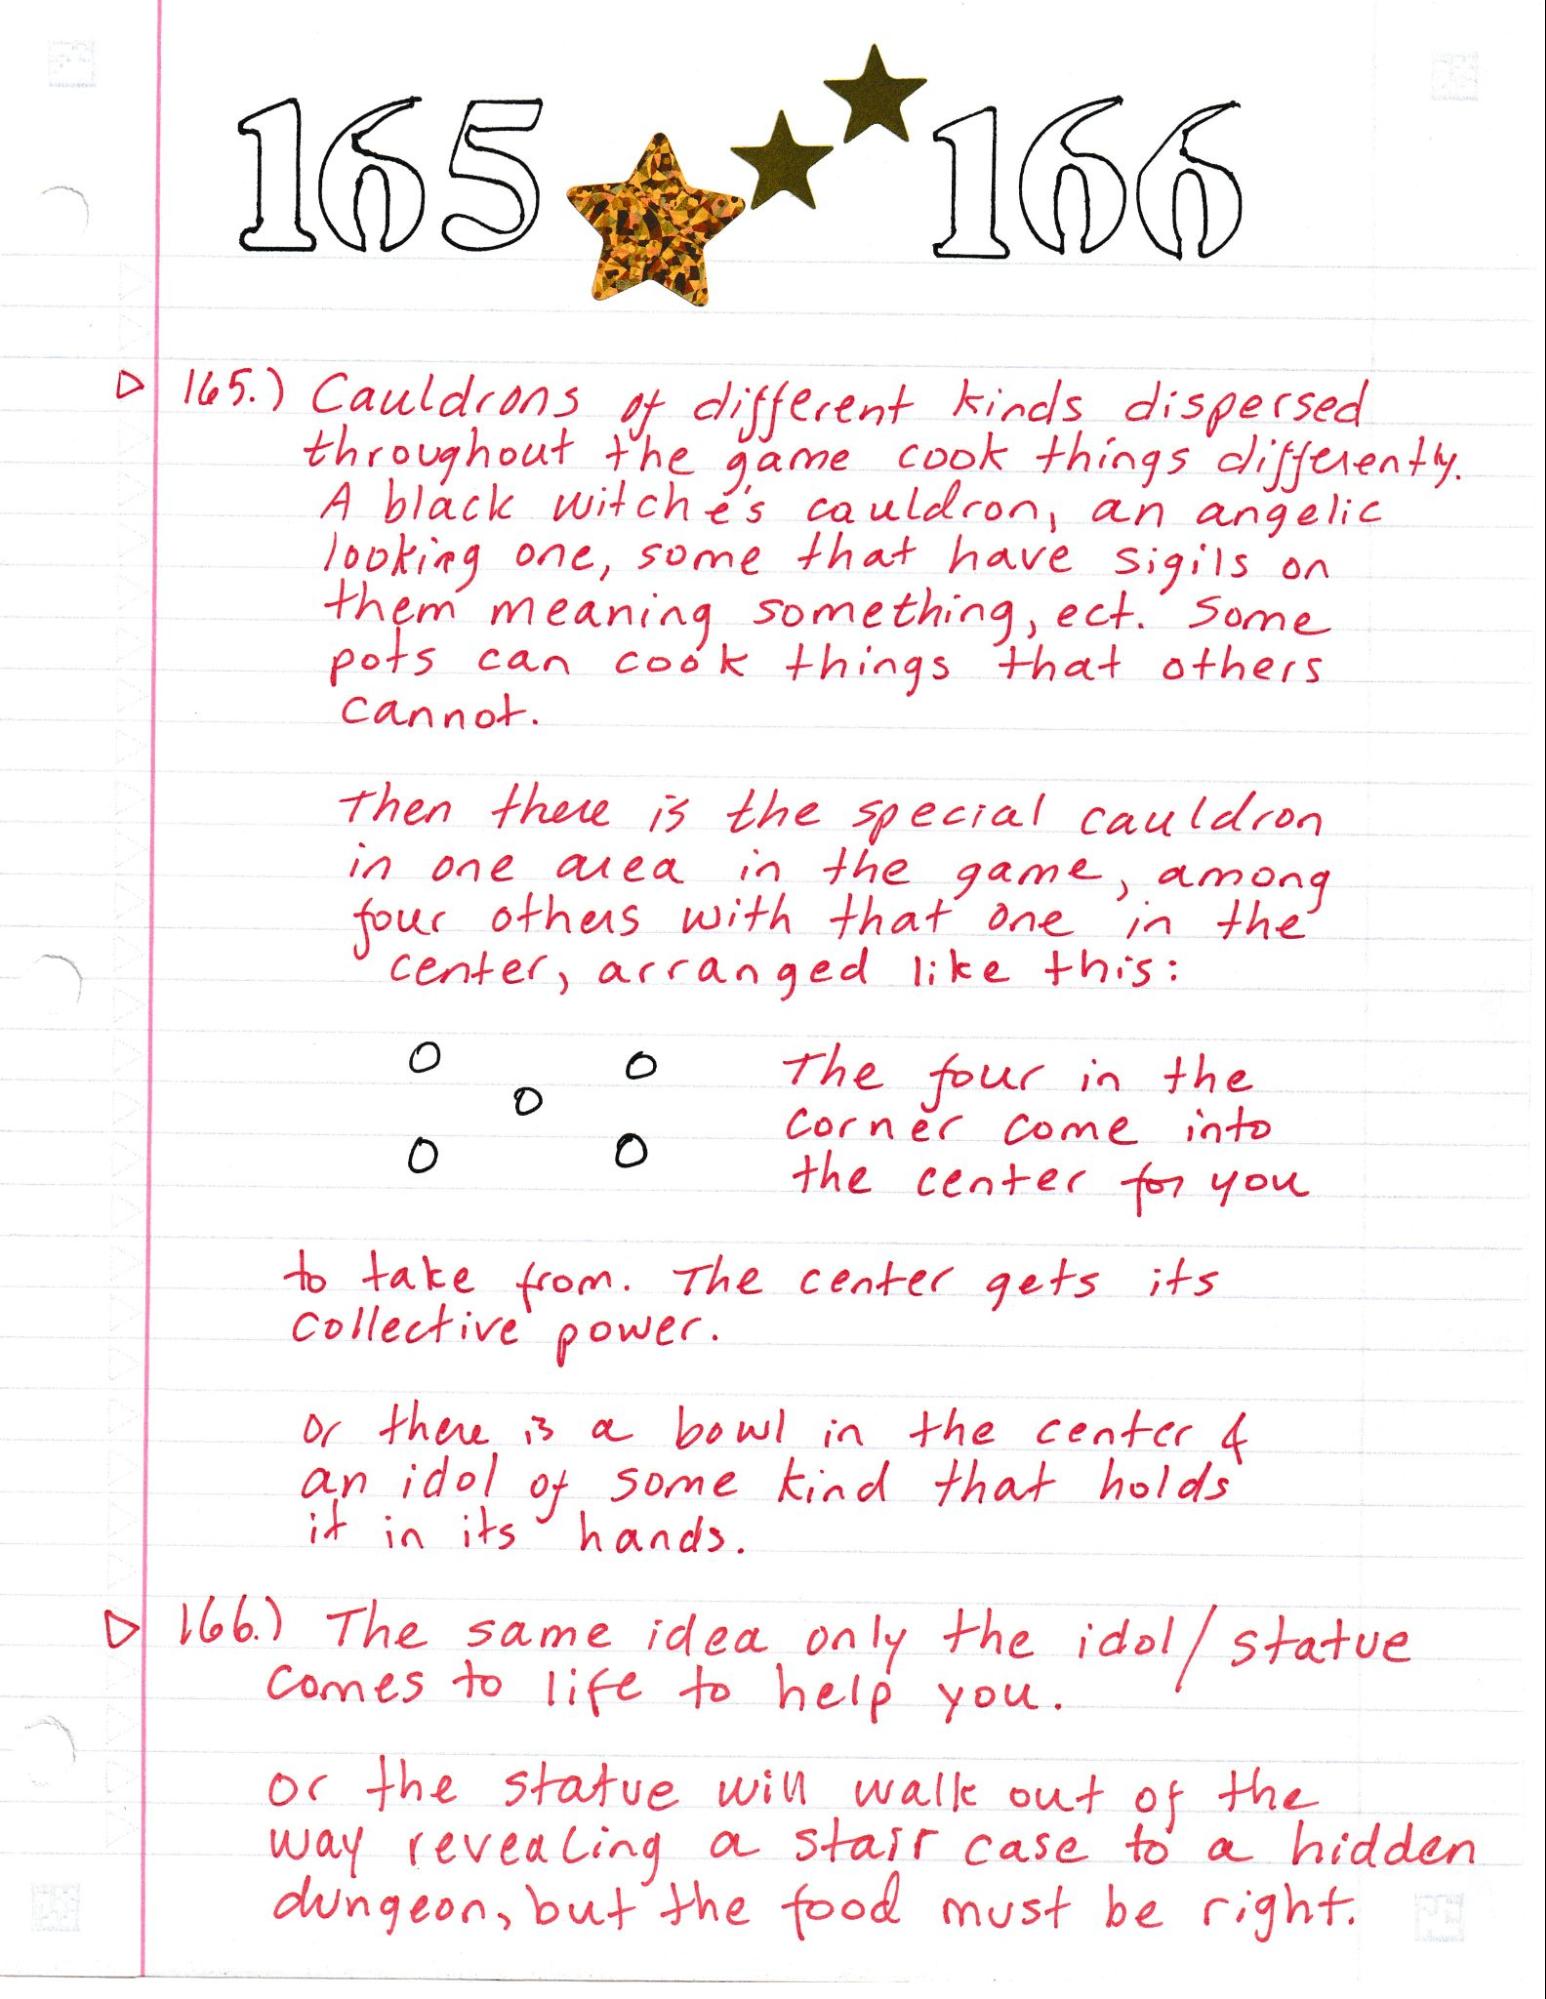 165 166
165.) Cauldrons of different kinds dispersed
throughout the game cook things differently.
A black witche's cauldron, an angelic
looking one, some that have sigils on
them meaning something, ect. Some
pots can cook things that others
cannot.
Then there is the special cauldron
in one area in the game, among
four others with that one in the
center, arranged like this:
The four in the
corner come into
the center for you
to take from. The center gets its
collective power.
or there is a bowl in the center &
an idol of some kind that holds
it in its hands.
166.) The same idea only the idol/statue
comes to life to help you.
or the statue will walk out of the
way revealing a stair case to a hidden
dungeon, but the food must be right.